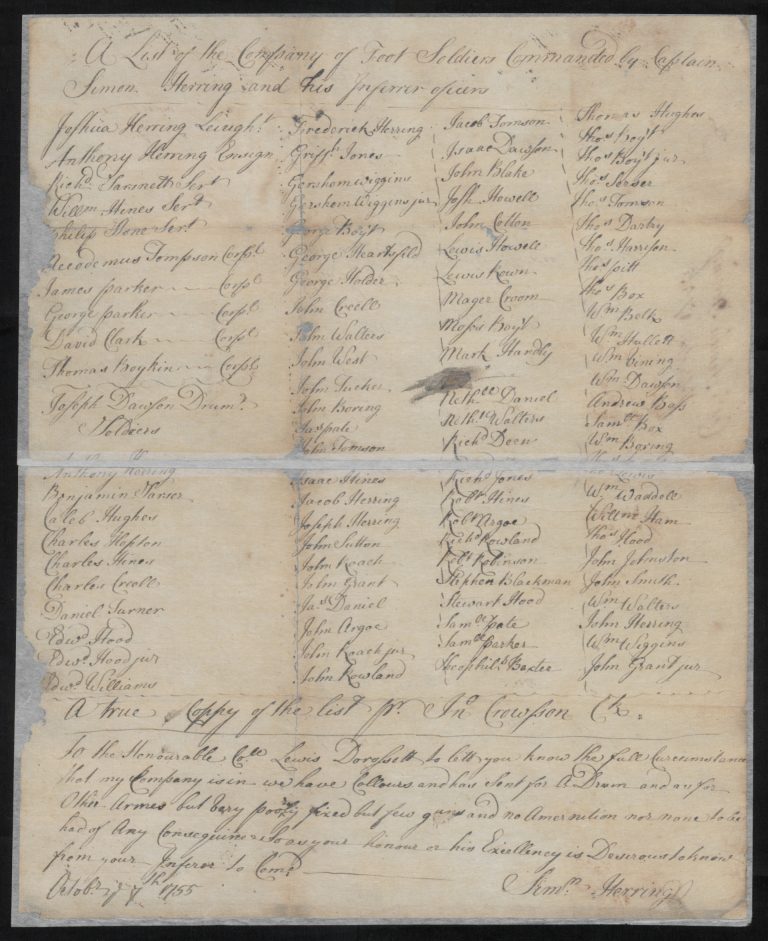 A List of the Company of Foot Soldiers Commanded by Captain
Simon Herring and his Inferer oficers
Joshua Herring Leiught
Anthony Herring Ensign
Richd Sarsnett Sert
Willm Hines Sert
Philip Hone Sert
Necodemus Tompson Corpl
James parker Corpl
George parker Corpl
David Clark Corpl
Thomas Boykin Corpl
Joseph Dawson Drumr
Soldiers
Anthony Herring
Benjamin
Caleb Hughes
Charles Hopton
Charles Hines
Charles Creell
Daniel Turner
Edwd Hood
Edwd Hood jur
Edwd Williams
Frederick Herring
Grifft Jones
Gershom Wiggins
Gershom Wiggins jur
George Boyt
George Heartsfild
George Holder
John Creell
John Walters
John West
John Tucker
John Boring
Jas pate
John Tomson
Isaac Hines
Jacob Herring
Joseph Herring
John Sutton
John Roach
John Grant
Jas Daniel
John Argoe
John Roach jur
John Rowland
Jacob Tomson
Isaac Dawson
John Blake
Josh Howell
John Cotton
Lewis Howell
Lewis Kown
Mager Croom
Moses Boyt
Mark Hardly
Nethll Daniel
Nethll Walters
Richd Deen
Richd Jones
Robt Hines
Robt Argoe
Richd Rowland
Robt Robinson
Stephen Blackman
Stewart Hood
Samll pate
Samll Parker
Theophils Baxter
Thomas Hughes
Thos Boyt
Thos Boyt jur
Thos
Thos Tomson
Thos Darby
Thos Harrison
Thos pitt
Thos Box
Wm Belk
Wm Hullett
Wm Vining
Wm Dawson
Andrew Bass
Samll Box
Wm Boring
Lewis
Wm Waddell
Willm Ham
Thos Hood
John Johnston
John Smith
Wm Walters
John Herring
Wm Wiggins
John Grant jur
A true Coppy of the list pr. Jno Crowsson Ck.
To the Honourable Coll Lewis Dorossett to lett you know the full Curcumstance
that my Company is in we have Collours and has Sent for A Drum and as for
Other Armes but very poorly fixed but few guns and no Amernition nor none to be
had of Any Consequince So as your honour or his Excellency is Deserous to know
from your Inferor to Comd
Octobr ye 7th 1755
Simon Herring